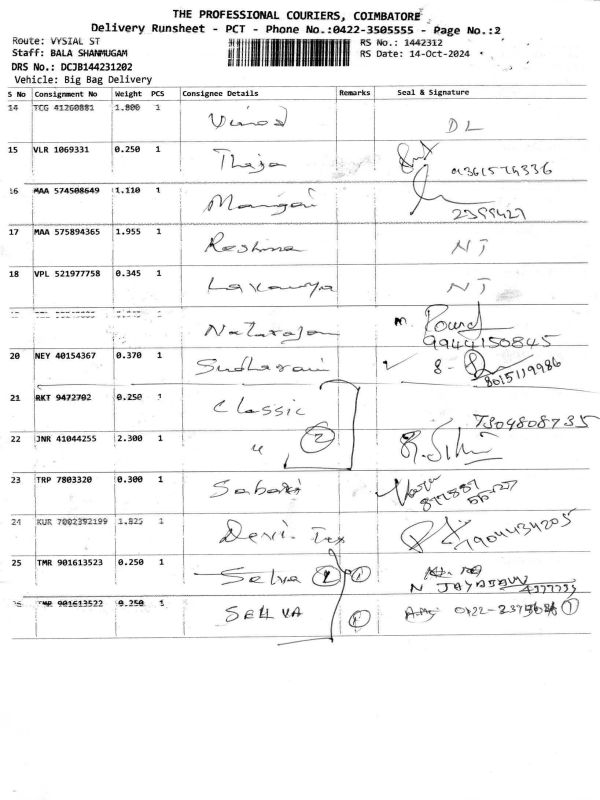 THE PROFESSIONAL COURIERS, COIMBATORE
Delivery Runsheet - PCT - Phone No.:0422-3505555 - Page No.:2
Route: VYSIAL ST RS No.: 1442312
Staff: BALA SHANMUGAM RS Date: 14-Oct-2024
DRS No.: DCJB144231202
Vehicle: Big Bag Delivery
S No Consignment No Weight PCS Consignee Details Remarks Seal & Signature
14 TCG 41260881 1.800 1 Vinod DL
15 VLR 1069331 0.250 1 Theja
16 MAA 574508649 1.110 1 Mangai
17 MAA 575894365 1.955 1 Reshma NJ
18 VPL 521977758 0.345 1 Lavanya NJ
Natarajan 9944150845
20 NEY 40154367 0.370 1 Sudharani 8015119986
21 RKT 9472702 0.250 1 Classic 7304808735
22 JNR 41044255 2.300 1 " 2
23 TRP 7803320 0.300 1 Sabari
24 KUR 7002392199 1.825 1 Devi Tex 7904434205
25 TMR 901613523 0.250 1 Selva 2 1
TMR 901613522 0.250 1 SELVA 1